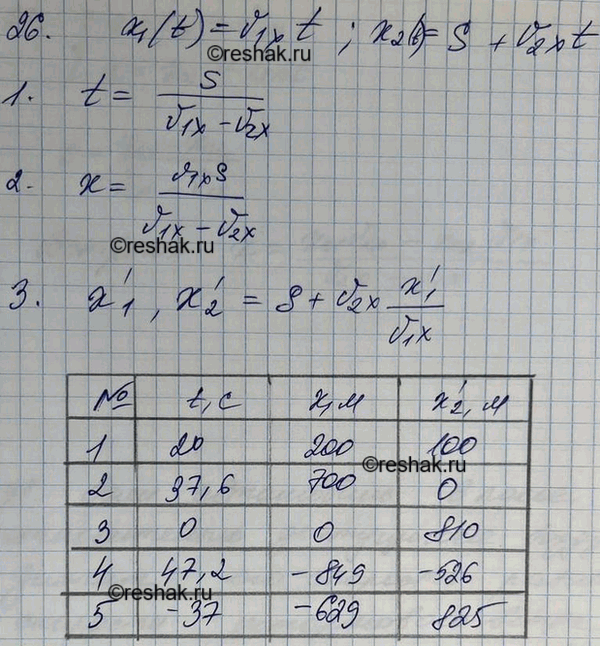 26. x₁(t) = v₁ₓ t ; x₂(t) = S + v₂ₓ t
©reshak.ru
1. t = S / (v₁ₓ − v₂ₓ)
2. x = v₁ₓS / (v₁ₓ − v₂ₓ)
©reshak.ru
3. x′₁ , x′₂ = S + v₂ₓ x′₁ / v₁ₓ
№ t, с x, м x′₂, м
1 20 200 100
©reshak.ru
2 37,6 700 0
3 0 0 810
4 47,2 −849 −526
©reshak.ru
5 −37 −629 825